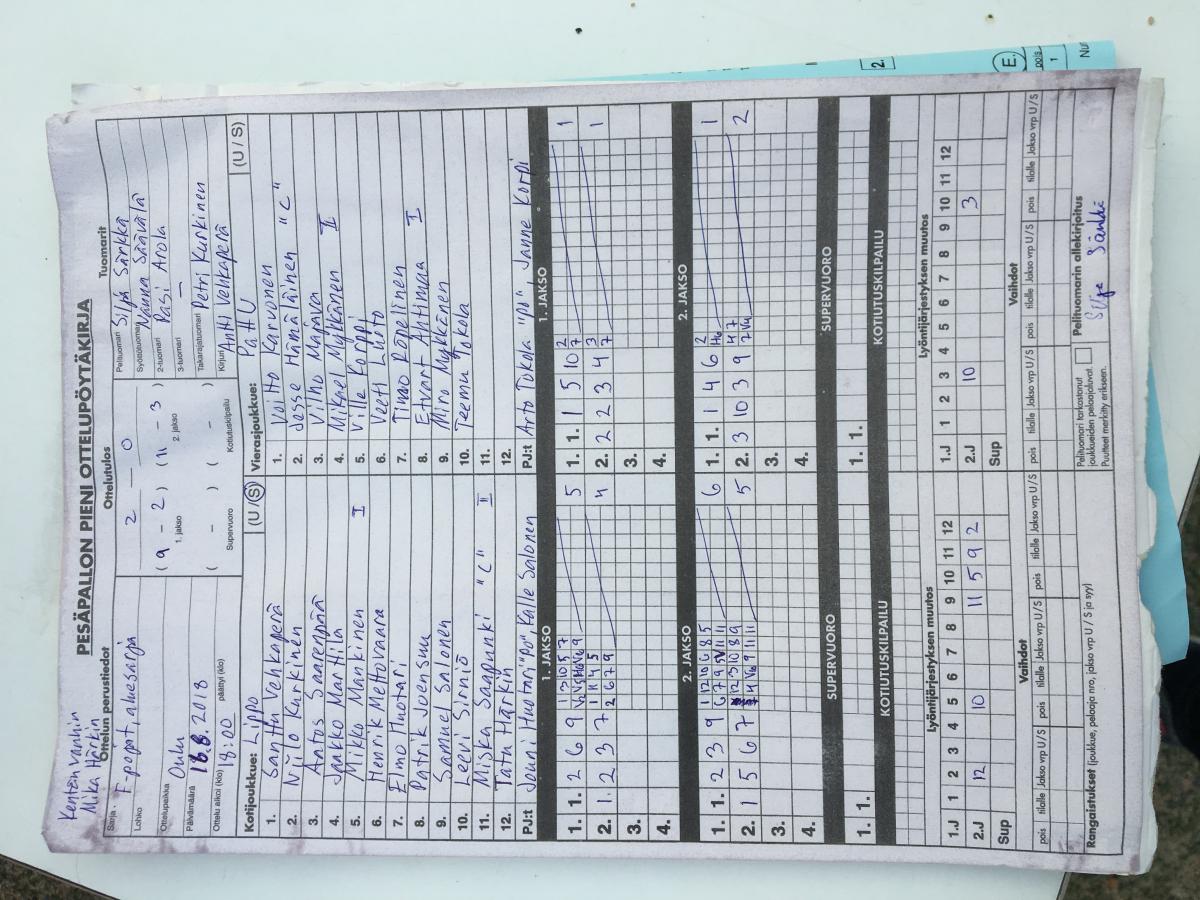 Kentän vanhin
Mika Härkin
PESÄPALLON PIENI OTTELUPÖYTÄKIRJA
Ottelun perustiedot
Sarja F-pojat, aluesarja
Lohko
Ottelupaikka Oulu
Päivämäärä 18.8.2018
Ottelu alkoi (klo) 18:00 päättyi (klo)
Ottelutulos
2 — 0
( 9 – 2 ) ( 11 – 3 )
1. jakso 2. jakso
( – ) ( – )
Supervuoro Kotiutuskilpailu
Tuomarit
Pelituomari Silja Särkkä
Syöttötuomari Nanna Säävälä
2-tuomari Pasi Arola
3-tuomari —
Takarajatuomari Petri Kurkinen
Kirjuri Antti Vehkaperä
Kotijoukkue: Lippo (U / S)
1. Santtu Vehkaperä
2. Niilo Kurkinen
3. Aatos Saarenpää
4. Jaakko Marttila
5. Mikko Mankinen I
6. Henrik Mettovaara
7. Elmo Huotari
8. Patrik Joensuu
9. Samuel Salonen
10. Leevi Sirniö
11. Miska Saapunki "C" II
12. Tatu Härkin
PJ:t Jouni Huotari "PJ", Kalle Salonen
Vierasjoukkue: PattU (U / S)
1. Voitto Karvonen
2. Jesse Hämäläinen "C"
3. Vilho Määävä
4. Mikael Mylkkänen II
5. Ville Korpi
6. Veeti Luoto
7. Timo Röpelinen
8. Etvart Ahtimaa I
9. Miro Mykkänen
10. Teemu Tokola
11.
12.
PJ:t Arto Tokola "PJ", Janne Korpi
1. JAKSO 1. JAKSO
1. 1. 2 6 9 5 1. 1. 1 5 10 1
2. 1. 2 3 7 4 2. 2 2 3 4 1
3. 3.
4. 4.
2. JAKSO 2. JAKSO
1. 1. 2 3 9 6 1. 1. 1 4 6 1
2. 1 5 6 7 5 2. 3 10 3 9 2
3. 3.
4. 4.
SUPERVUORO SUPERVUORO
1. 1. 1. 1.
KOTIUTUSKILPAILU KOTIUTUSKILPAILU
Lyöntijärjestyksen muutos Lyöntijärjestyksen muutos
1.J 1 2 3 4 5 6 7 8 9 10 11 12 1.J 1 2 3 4 5 6 7 8 9 10 11 12
2.J 12 10 11 5 9 2 2.J 10 3
Sup Sup
Vaihdot Vaihdot
pois tilalle Jakso vrp U / S pois tilalle Jakso vrp U / S pois tilalle Jakso vrp U / S pois tilalle Jakso vrp U / S pois tilalle Jakso vrp U / S pois tilalle Jakso vrp U / S
Rangaistukset (joukkue, pelaaja nro, jakso vrp U / S ja syy)
Pelituomari tarkastanut
joukkueiden pelaajaluvat.
Puutteet merkitty erikseen.
Pelituomarin allekirjoitus
Silja Särkkä
2.
E.
pois
1